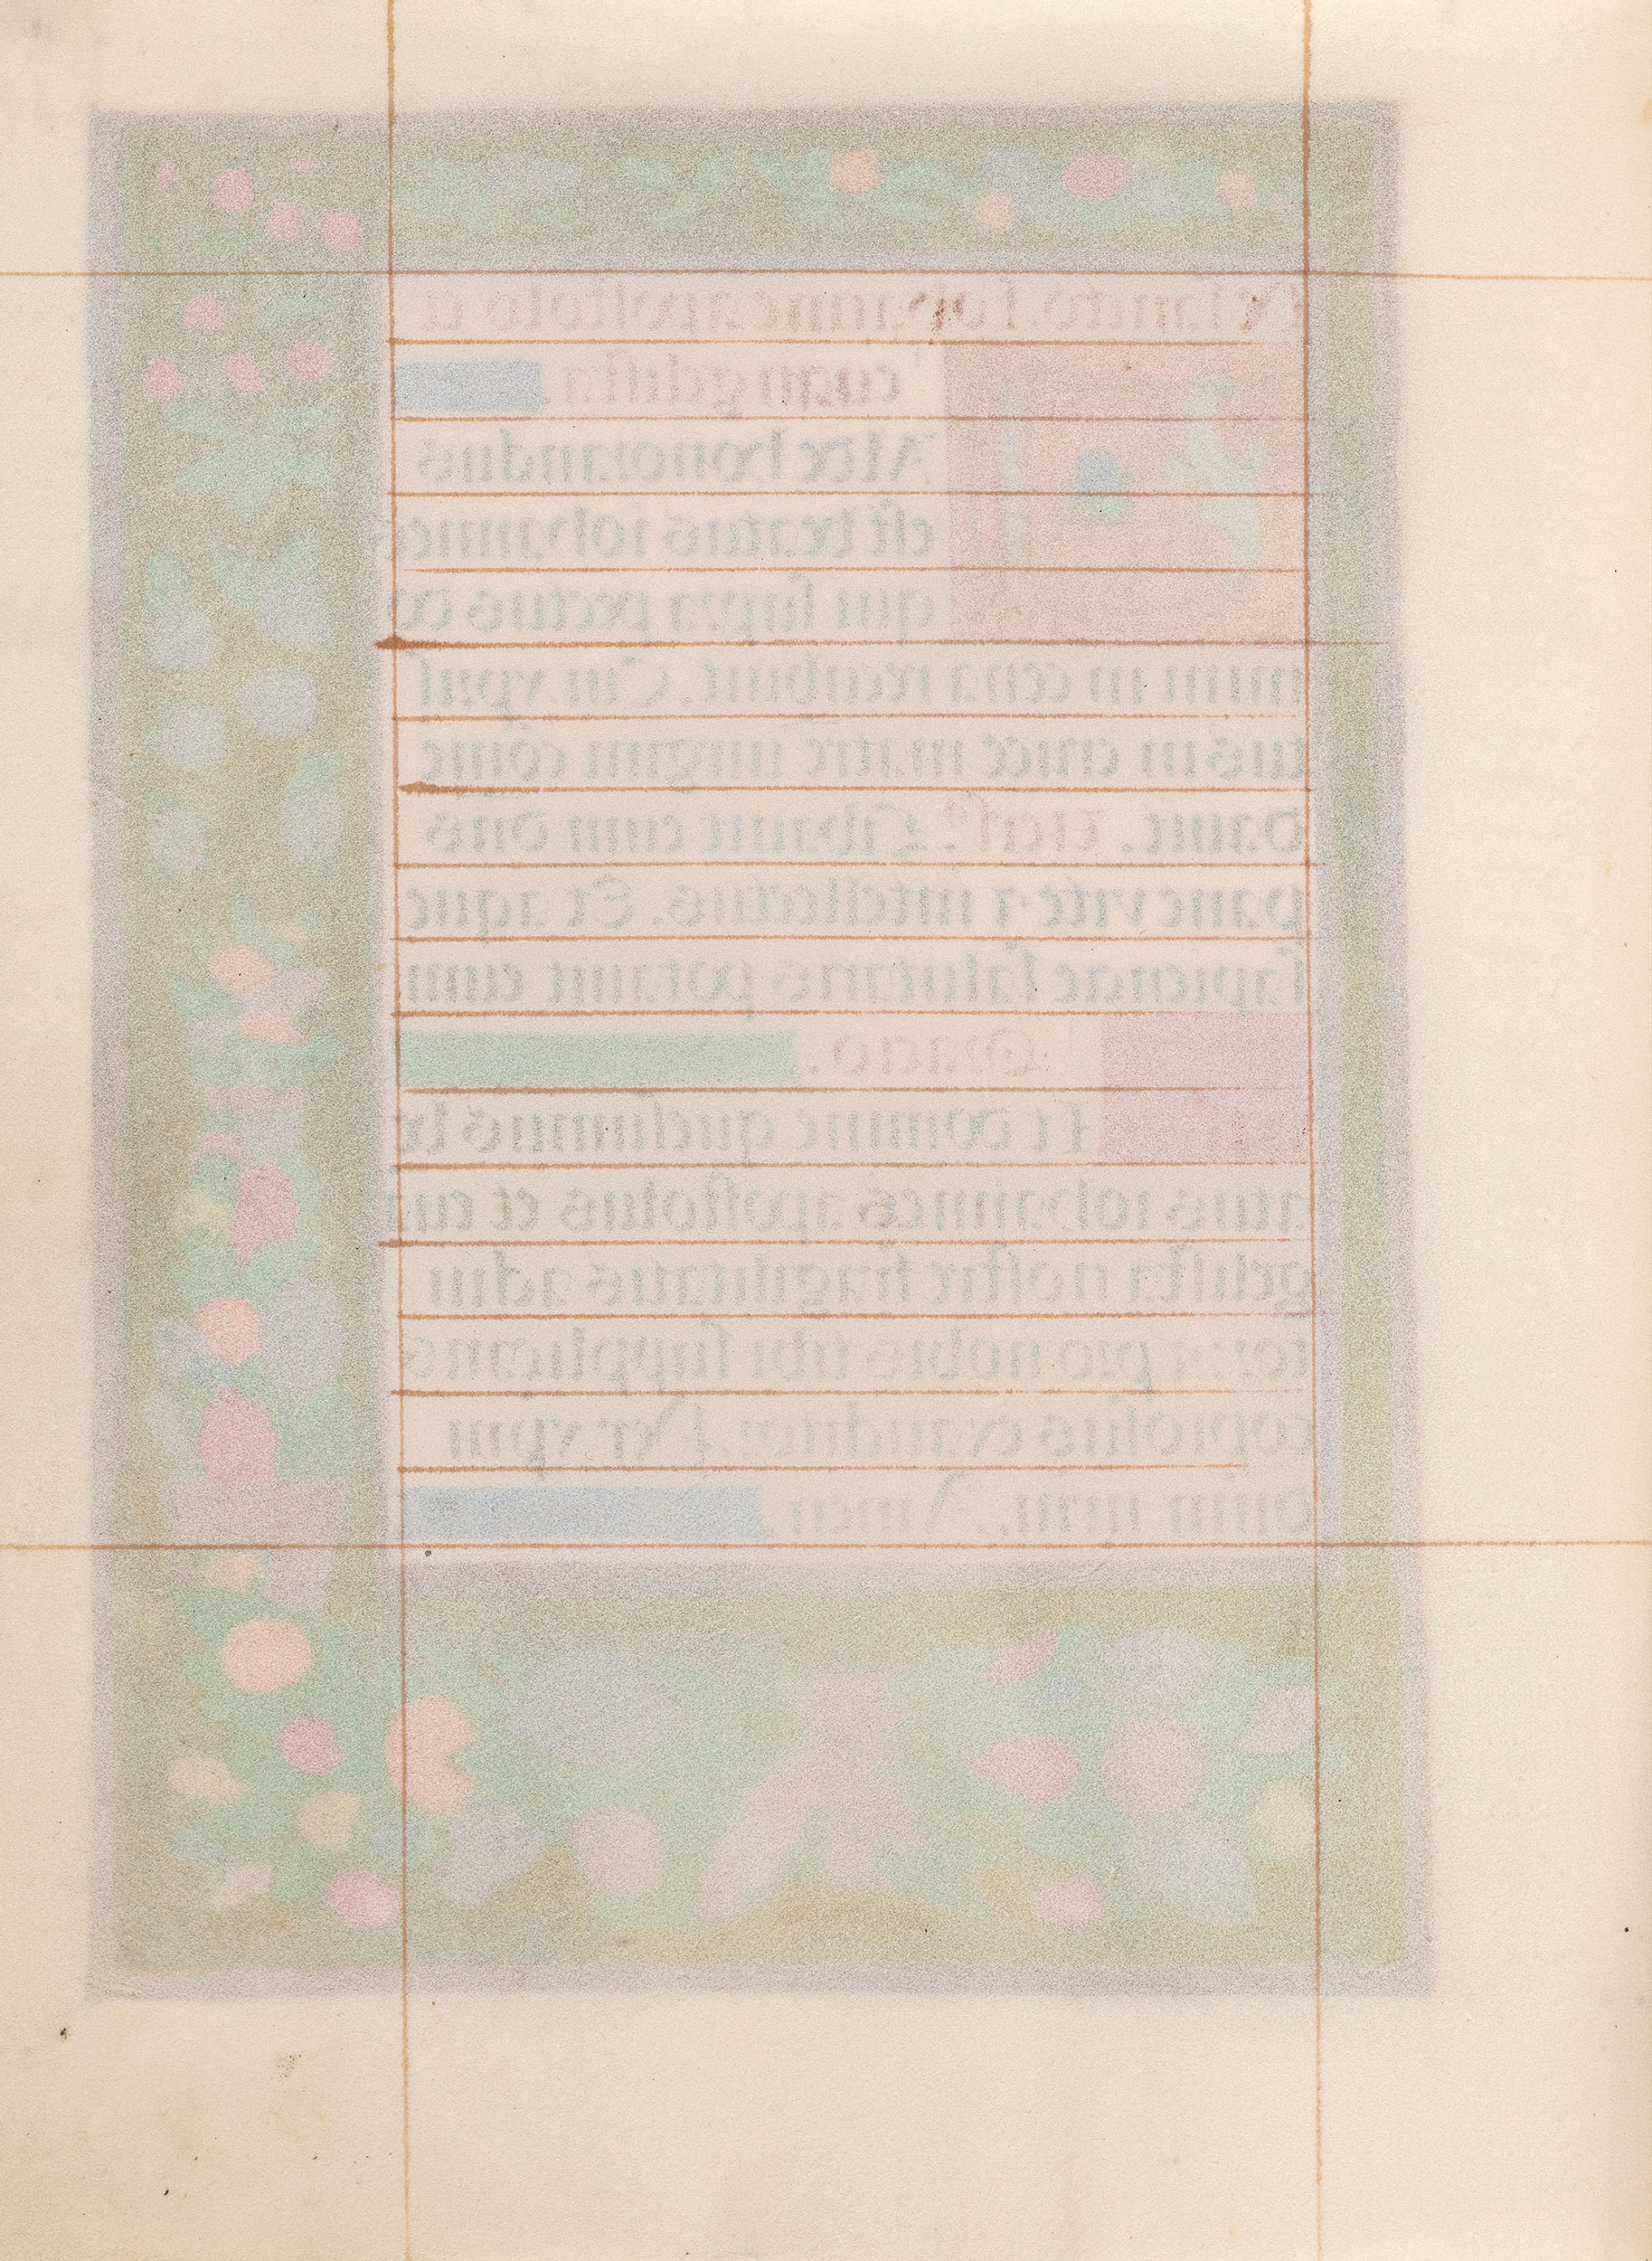 De sancto. Iohanne apostolo et
euangelista.
Alde honorandus
est beatus iohannes
qui supra pectus do
mini in cena recubuit. Cui xpus
tus in cruce matre uirgini come
dauit. Cibauit eum dns
pane vite ⁊ intellectus. Et aque
sapientie salutaris potauit eum
Oracio.
It domine quesumus be
atus iohannes apostolus et eua
gelista nostre fragilitatis adiu
tor: ⁊ pro nobis tibi supplicans
copiosius exauditor. Per xpm
dnm nrm. Amen.